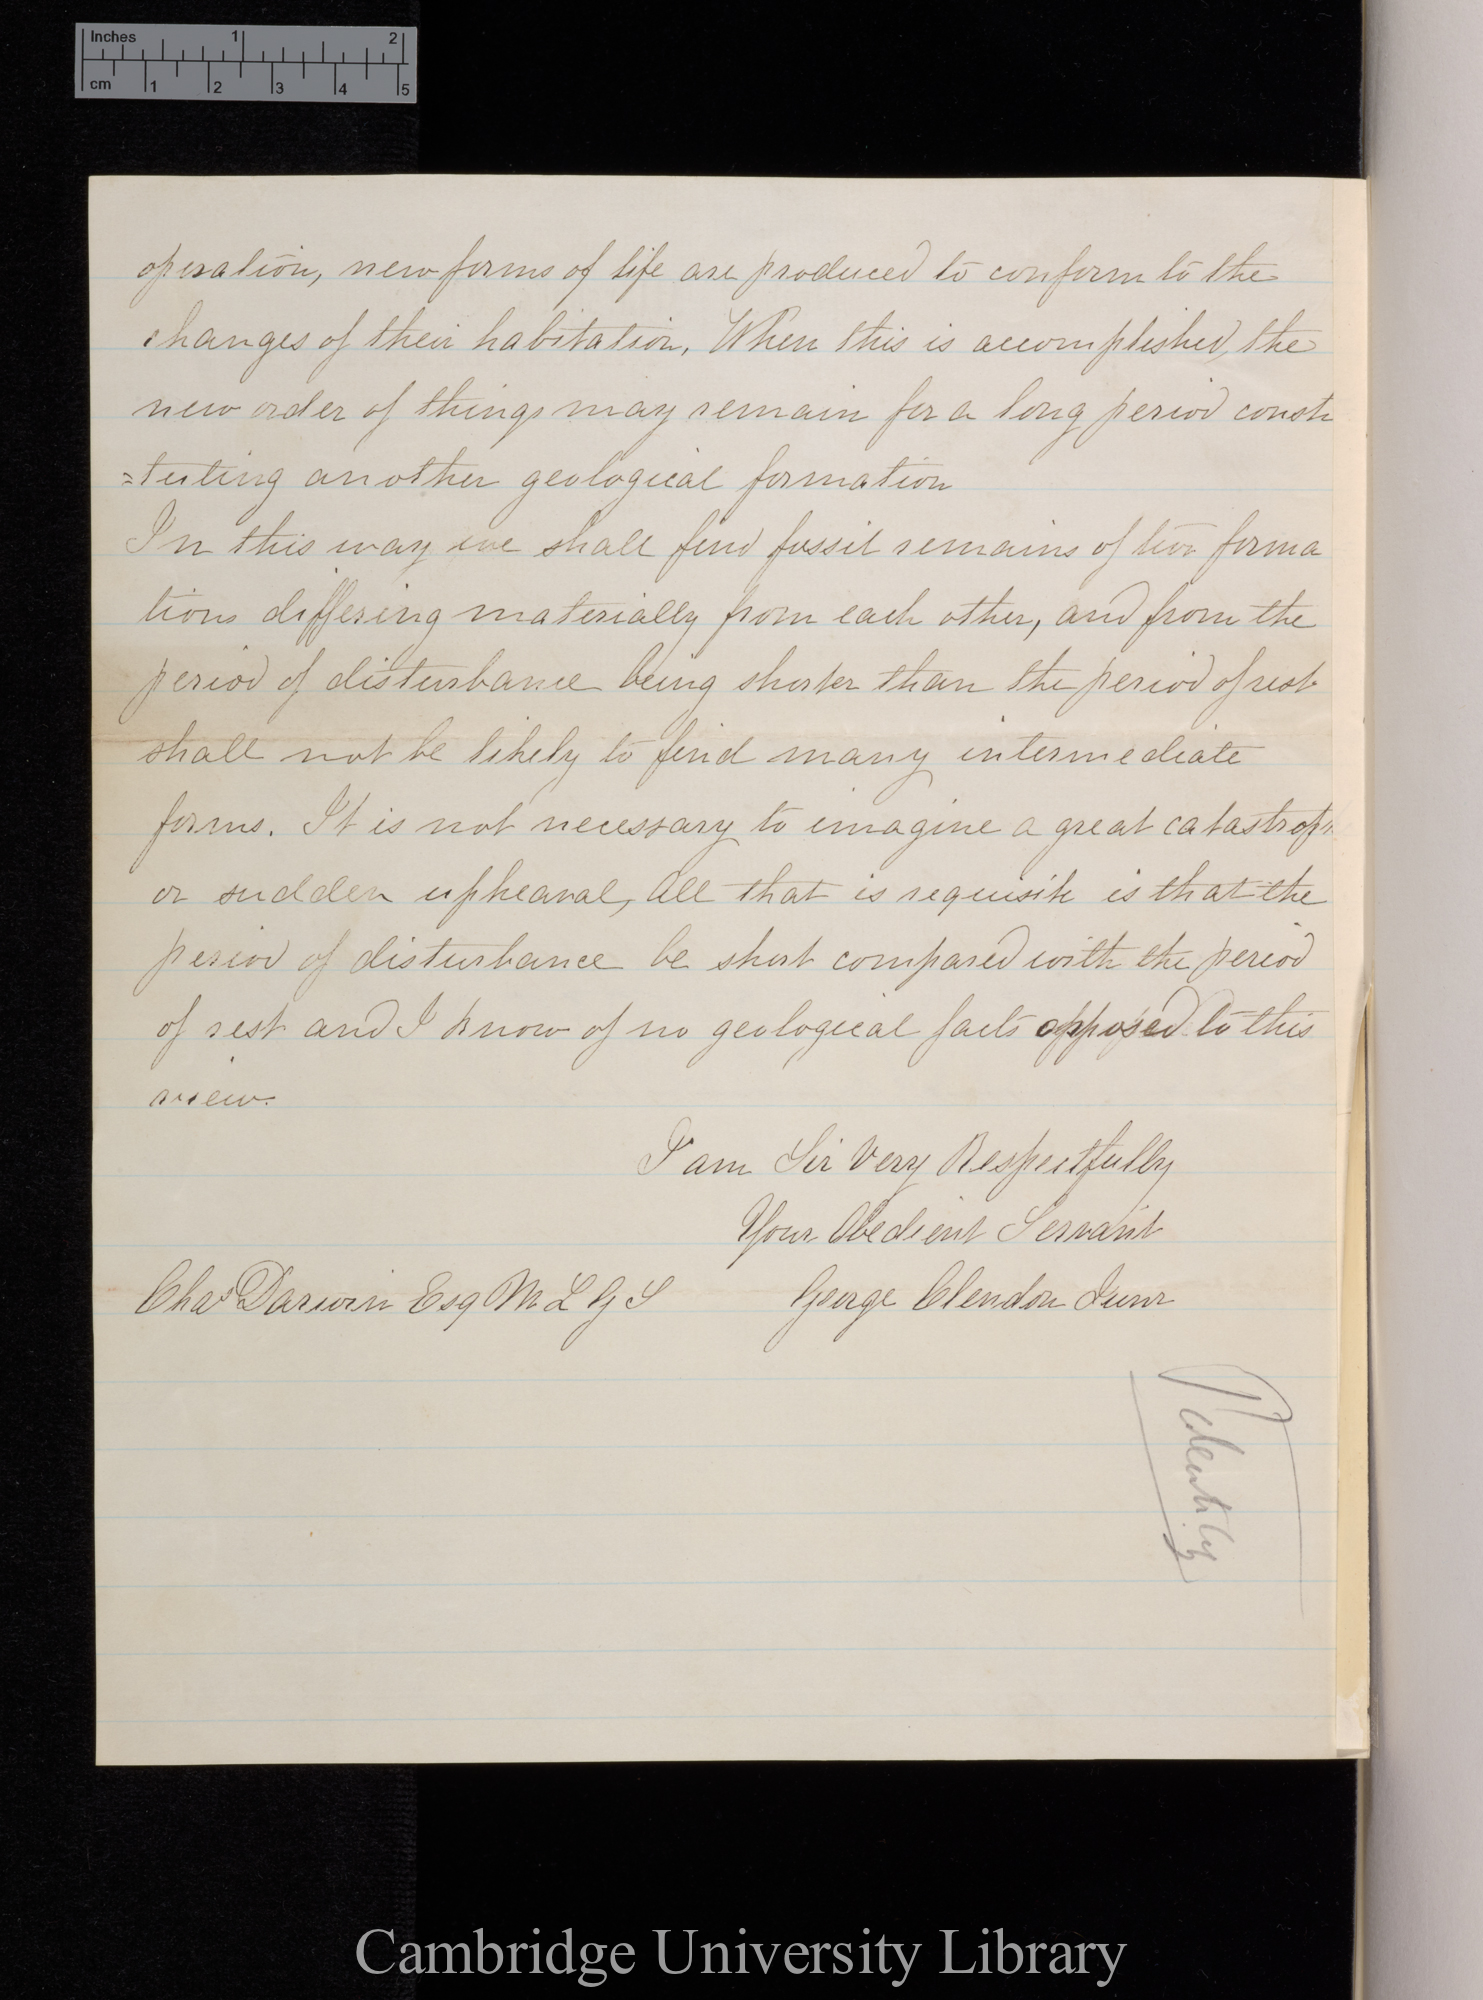 Inches 1 2
cm 1 2 3 4 5
operation, new forms of life are produced to conform to the
changes of their habitation. When this is accomplished, the
new order of things may remain for a long period consti
=tuting another geological formation
In this way we shall find fossil remains of two forma
tions differing materially from each other, and from the
period of disturbance being shorter than the period of rest
shall not be likely to find many intermediate
forms. It is not necessary to imagine a great catastroph
or sudden upheaval, All that is requisite is that the
period of disturbance be short compared with the period
of rest and I know of no geological facts opposed to this
view.
I am Sir Very Respectfully
Your Obedient Servant
Chas Darwin Esq M L G S
George Clendon Junr
Cambridge University Library